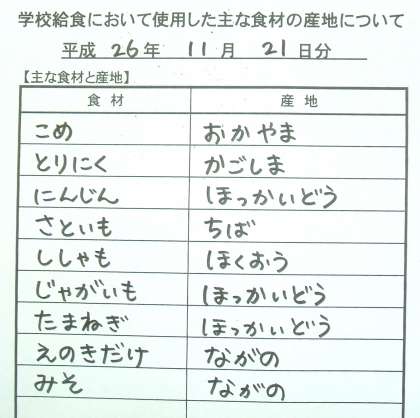 学校給食において使用した主な食材の産地について
平成 26 年 11 月 21 日分
【主な食材と産地】
食材 産地
こめ おかやま
とりにく かごしま
にんじん ほっかいどう
さといも ちば
ししゃも ほくおう
じゃがいも ほっかいどう
たまねぎ ほっかいどう
えのきだけ ながの
みそ ながの